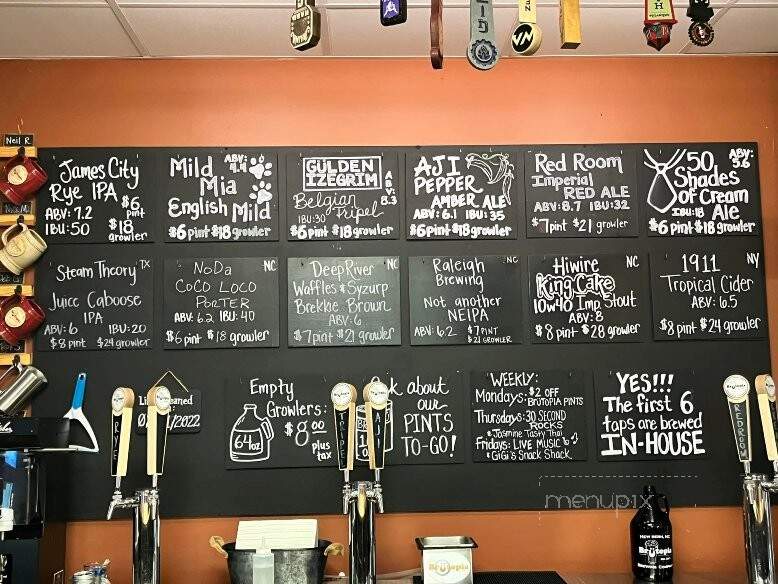 Neil R.
James City
Rye IPA
$6
pint
ABV: 7.2
IBU: 50
$18
growler
Mild
ABV:
4.4
Mia
English Mild
$6 pint $18 growler
GULDEN
IZEGRIM
ABV:
8.3
Belgian
Tripel
IBU: 30
$6 pint $18 growler
AJI
PEPPER
AMBER ALE
ABV: 6.1 IBU: 35
$6 pint $18 growler
Red Room
Imperial
RED ALE
ABV: 8.7 IBU: 32
$7 pint $21 growler
50
ABV:
5.6
Shades
of Cream
IBU: 18 Ale
$6 pint $18 growler
Steam Theory TX
Juice Caboose
IPA
ABV: 6 IBU: 20
$8 pint $24 growler
NoDa NC
CoCo LoCo
PORTER
ABV: 6.2 IBU: 40
$6 pint $18 growler
Deep River NC
Waffles & Syzurp
Brekkie Brown
ABV: 6
$7 pint $21 growler
Raleigh NC
Brewing
Not another
NEIPA
ABV: 6.2 $7 PINT
$21 GROWLER
Hiwire NC
King Cake
10w40 Imp Stout
ABV: 8
$8 pint $28 growler
1911 NY
Tropical Cider
ABV: 6.5
$8 pint $24 growler
/2022
Empty
Growlers:
64oz
$8.00
plus
tax
about
our
PINTS
TO-GO!
WEEKLY:
Mondays: $2 OFF
BRUTOPIA PINTS
Thursdays: 30 SECOND
ROCKS
• Jasmine Tasty Thai
Fridays: LIVE MUSIC
• GiGi's Snack Shack
YES!!!
The first 6
taps are brewed
IN-HOUSE
RYE
REDROOM
menupix
NEW BERN, NC
Brutopia
Brutopia